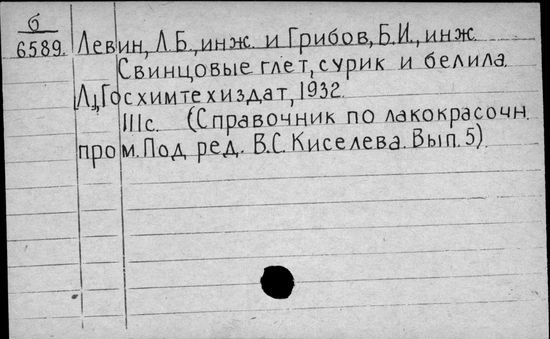 б
6589. Левин, Л.Б., инж. и Грибов, Б.И., инж.
Свинцовые глет, сурик и белила.
Л., Госхимтехиздат, 1932.
111с. (Справочник по лакокрасочн.
пром. Под ред. В.С. Киселева. Вып. 5).